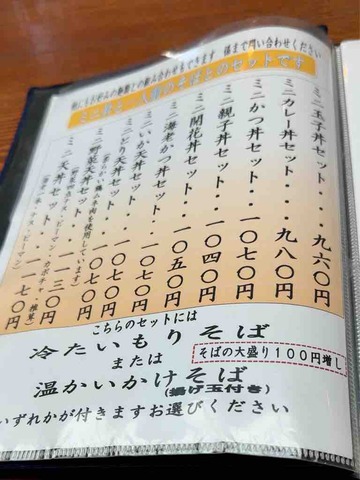 他にもお好みの種類との組み合わせもできます 係まで問い合わせください
ミニ丼と一人前のそばとのセットです
ミニ玉子丼セット・・・九六〇円
ミニカレー丼セット・・・九八〇円
ミニかつ丼セット・・・一〇七〇円
ミニ親子丼セット・・・一〇四〇円
ミニ開花丼セット・・・一〇五〇円
ミニ海老かつ丼セット・・一〇七〇円
ミニいか天丼セット・・・一〇七〇円
ミニとり天丼セット・・・一〇七〇円
ミニ野菜天丼セット・・・一一三〇円
ミニ天丼セット・・・一一七〇円
こちらのセットには
冷たいもりそば
または
そばの大盛り100円増し
温かいかけそば
(揚げ玉付き)
いずれかが付きますお選びください